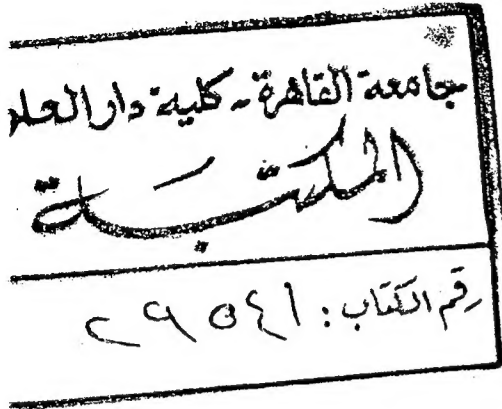 جامعة القاهرة - كلية دار العلو
المكتبة
رقم الكتاب : ٢٩٥٤١